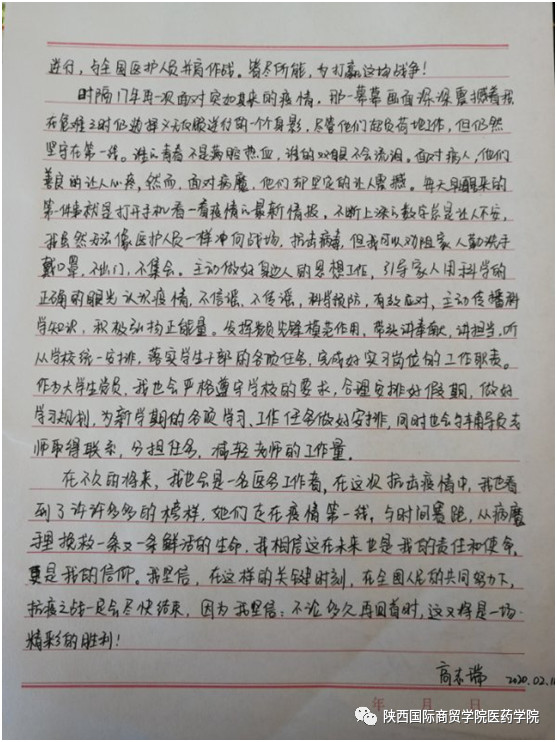 进行，与全国医护人员并肩作战。皆尽所能，为打赢这场战争！
时隔17年再一次面对突如其来的疫情，那一幕幕画面深深震撼着我
在危难之时仍选择义无反顾逆行的一个个身影，尽管他们超负荷地工作，但仍然
坚守在第一线。谁的青春不是满腔热血，谁的双眼不会流泪。面对病人，他们
善良的让人心疼，然而，面对病魔，他们却坚定的让人震撼。每天早醒来的
第一件事就是打开手机看一看疫情的最新情报，不断上涨的数字总是让人不安，
我虽然无法像医护人员一样冲向战场，抗击病毒，但我可以劝阻家人勤洗手
戴口罩，不出门，不集会。主动做好身边人的思想工作，引导家人用科学的
正确的眼光认识疫情，不信谣，不传谣，科学预防，有效应对，主动传播科
学知识，积极弘扬正能量。发挥党员先锋模范作用，带头讲奉献，讲担当，听
从学校统一安排，落实学生干部的各项任务，完成好实习岗位的工作职责。
作为大学生党员，我也会严格遵守学校的要求，合理安排好假期，做好
学习规划，为新学期的各项学习、工作任务做好安排，同时也会与辅导员老
师取得联系，分担任务，减轻老师的工作量。
在不久的将来，我也会是一名医务工作者，在这次抗击疫情中，我也看
到了许许多多的榜样，她们走在疫情第一线，与时间赛跑，从病魔
手里挽救一条又一条鲜活的生命，我相信这在未来也是我的责任和使命，
更是我的信仰。我坚信，在这样的关键时刻，在全国人民的共同努力下，
抗疫之战一定会尽快结束，因为我坚信：不论多久再回首时，这又将是一场
精彩的胜利！
高 瑞 2020.02.1
年 月 日
陕西国际商贸学院医药学院